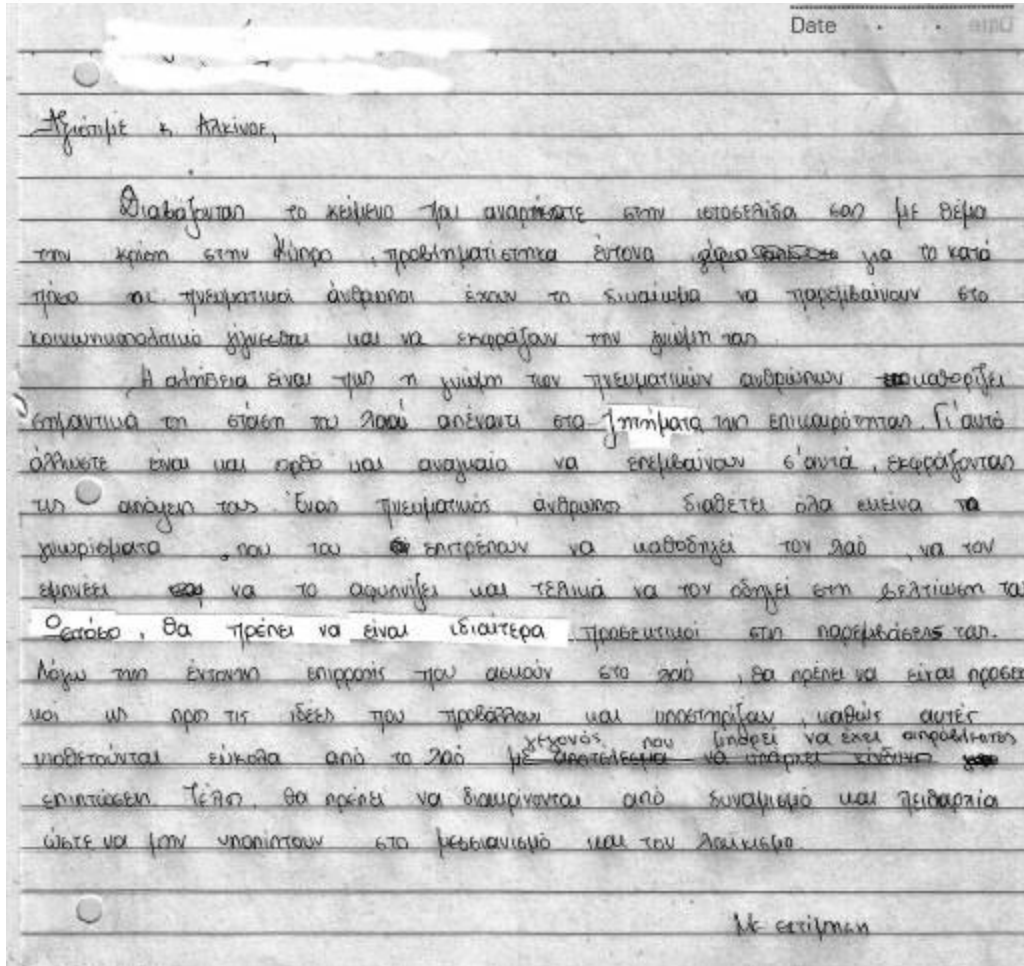 Date . .
Αξιότιμε κ. Αλκίνοε,
Διαβάζοντας το κείμενο που αναρτήσατε στην ιστοσελίδα σας με θέμα
την κρίση στην Κύπρο, προβληματίστηκα έντονα για το κατά
πόσο οι πνευματικοί άνθρωποι έχουν το δικαίωμα να παρεμβαίνουν στο
κοινωνικοπολιτικό γίγνεσθαι και να εκφράζουν την γνώμη τους.
Η αλήθεια είναι πως η γνώμη των πνευματικών ανθρώπων καθορίζει
σημαντικά τη στάση του λαού απέναντι στα ζητήματα της επικαιρότητας. Γι'αυτό
άλλωστε είναι και ορθό και αναγκαίο να επεμβαίνουν σ'αυτά, εκφράζοντας
τις απόψεις τους. Ένας πνευματικός άνθρωπος διαθέτει όλα εκείνα τα
γνωρίσματα, που του επιτρέπουν να καθοδηγεί τον λαό, να τον
εμπνέει να το αφυπνίζει και τελικά να τον οδηγεί στη βελτίωση του
Ωστόσο, θα πρέπει να είναι ιδιαίτερα προσεκτικοί στις παρεμβάσεις τους.
Λόγω της έντονης επιρροής που ασκούν στο λαό, θα πρέπει να είναι προσεκ
κοί ως προς τις ιδέες που προβάλλουν και υποστηρίζουν, καθώς αυτές
γεγονός που μπορεί να έχει απρόβλεπτες
υιοθετούνται εύκολα από το λαό με αποτέλεσμα να υπάρχει κίνδυνος
επιπτώσεις. Τέλος, θα πρέπει να διακρίνονται από δυναμισμό και πειθαρχία
ώστε να μην υποπίπτουν στο μεσσιανισμό και τον λαϊκισμό.
Με εκτίμηση